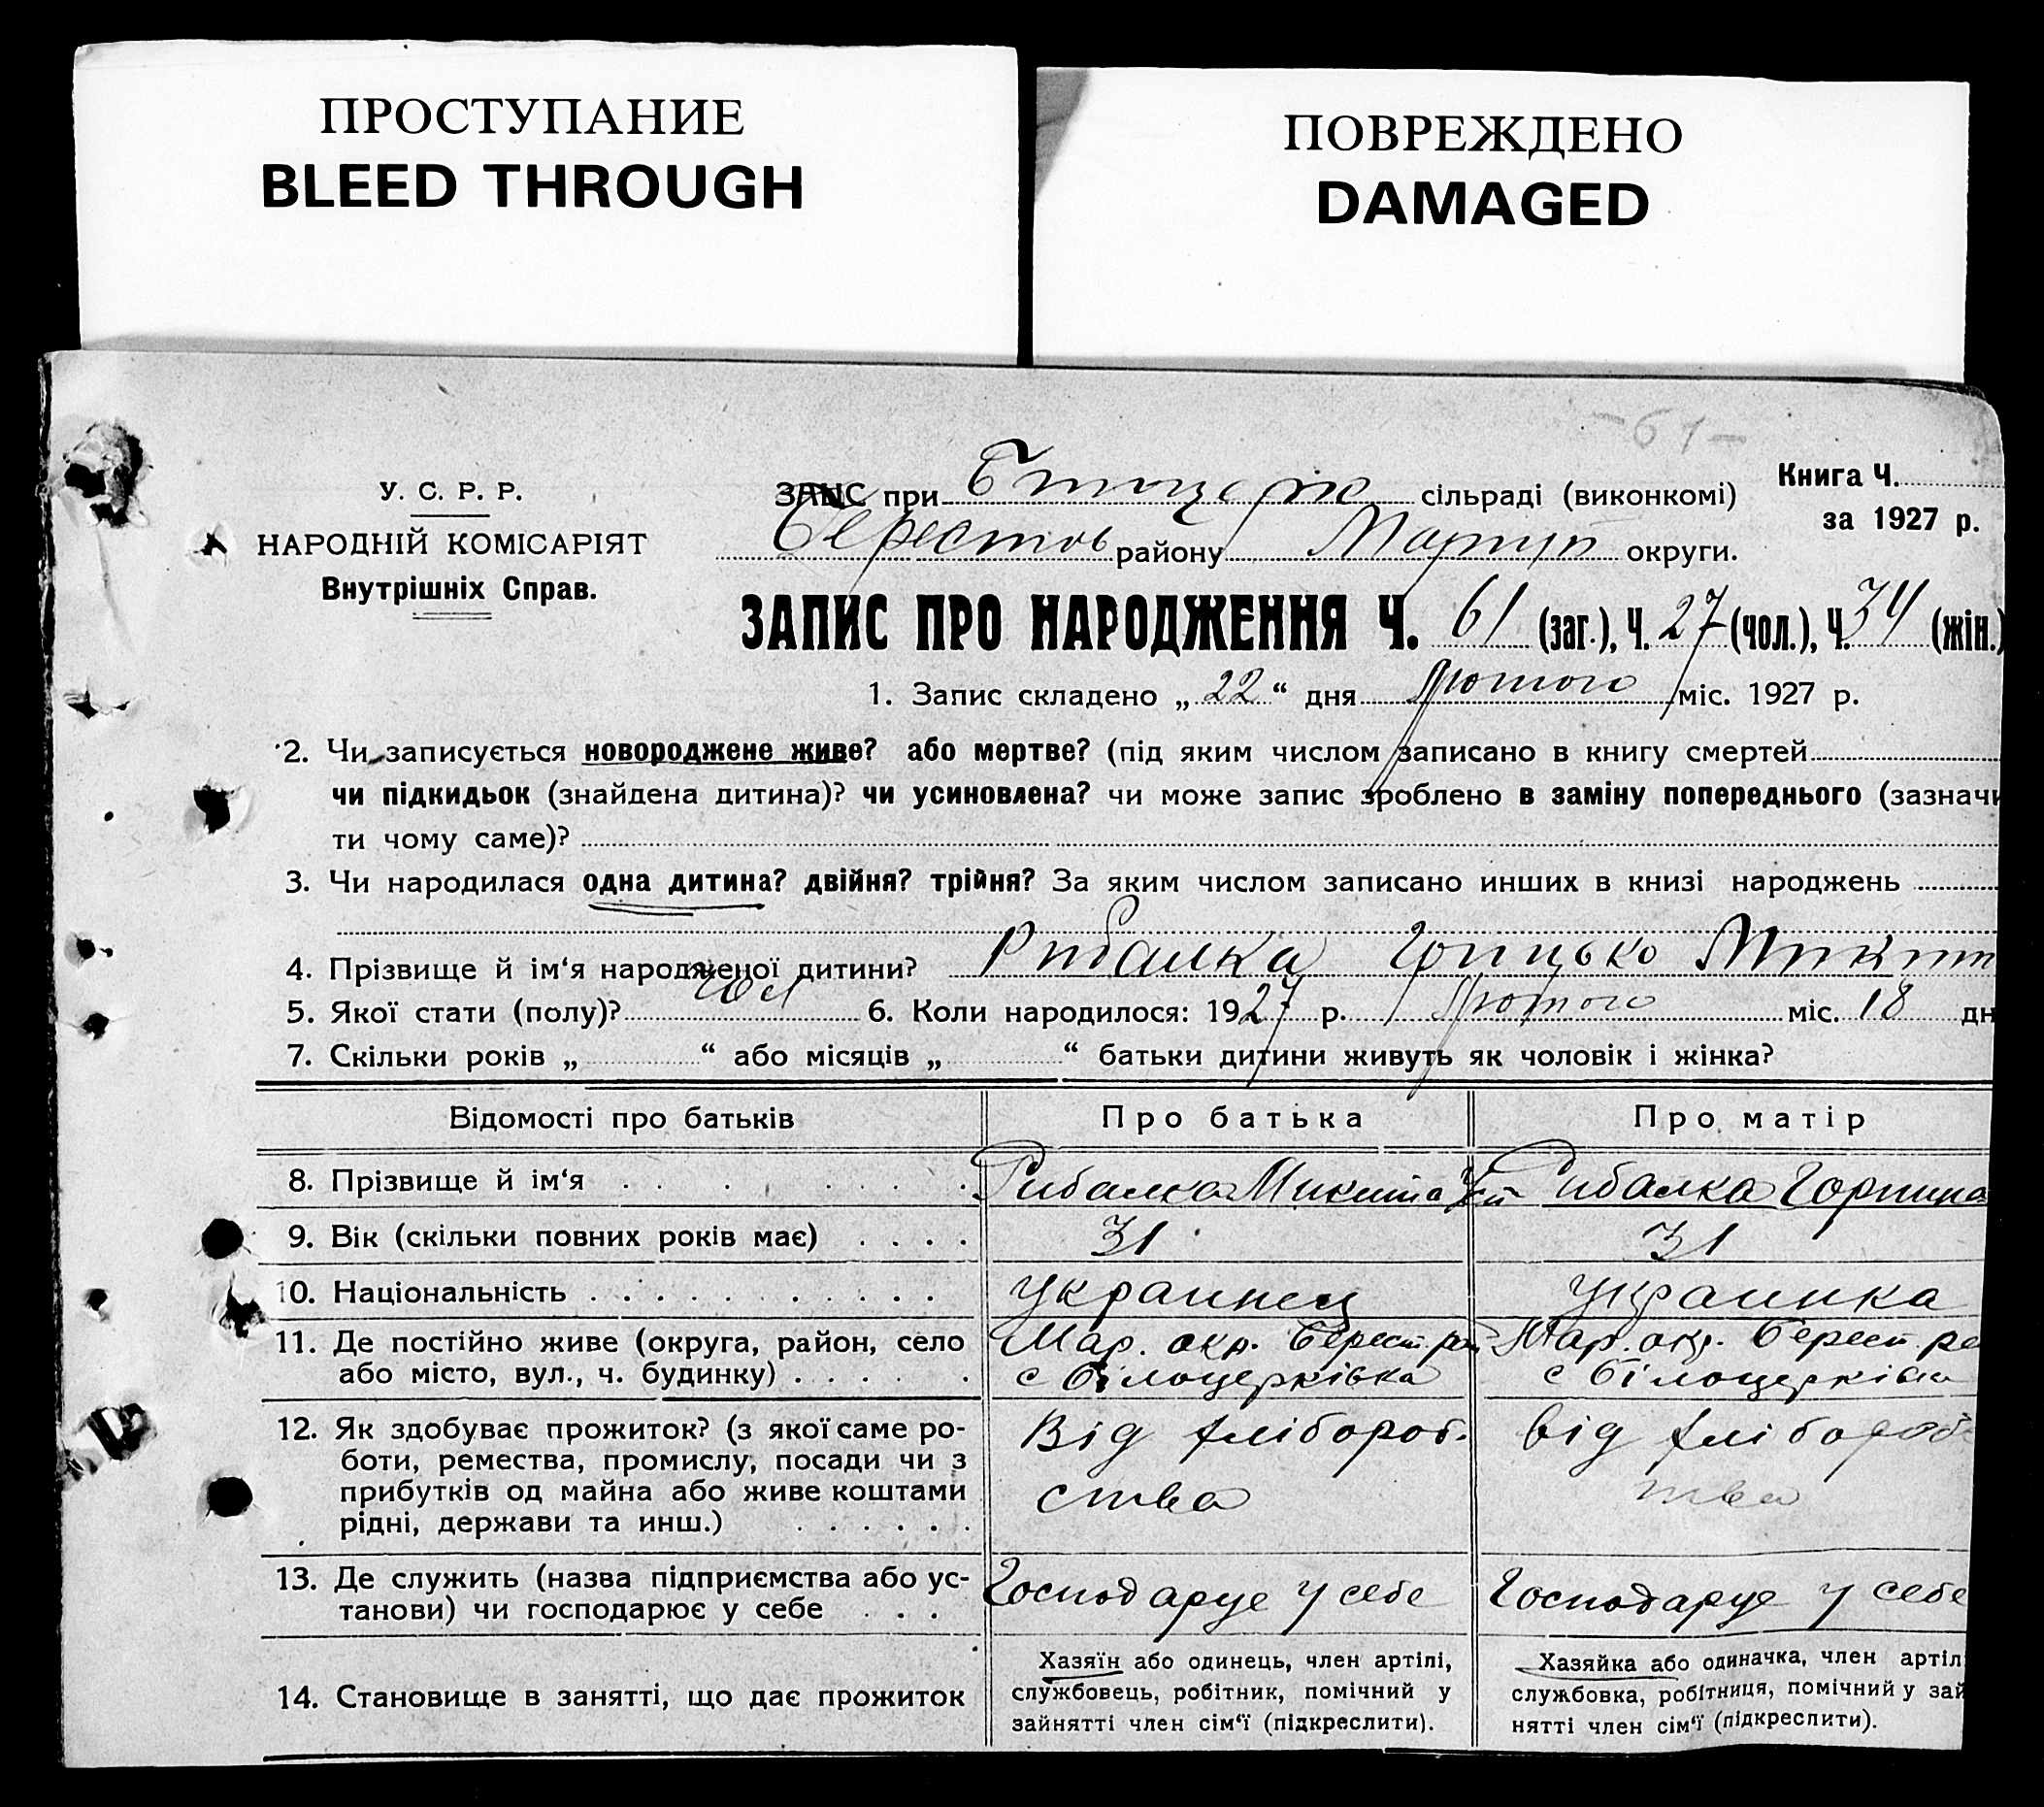 ПРОСТУПАНИЕ
BLEED THROUGH
ПОВРЕЖДЕНО
DAMAGED
-61-
У. С. Р. Р.
НАРОДНІЙ КОМІСАРІЯТ
Внутрішніх Справ.
ЗАПИС при сільраді (виконкомі)
Берестов району Маріуп округи.
Книга Ч.
за 1927 р.
ЗАПИС ПРО НАРОДЖЕННЯ Ч. 61 (заг.), Ч. 27 (чол.), Ч. 34 (жін.)
1. Запис складено „ 22 “ дня Лютого міс. 1927 р.
2. Чи записується новороджене живе? або мертве? (під яким числом записано в книгу смертей
чи підкидьок (знайдена дитина)? чи усиновлена? чи може запис зроблено в заміну попереднього (зазначи
ти чому саме)?
3. Чи народилася одна дитина? двійня? трійня? За яким числом записано инших в книзі народжень
4. Прізвище й ім‘я народженої дитини? Рибалка Грицько Микит
5. Якої стати (полу)? чол 6. Коли народилося: 1927 р. Лютого міс. 18 дн
7. Скільки років „ “ або місяців „ “ батьки дитини живуть як чоловік і жінка?
Відомості про батьків Про батька Про матір
8. Прізвище й ім‘я Рибалка Микита Рибалка Горпина
9. Вік (скільки повних років має) 31 31
10. Національність украинец украинка
11. Де постійно живе (округа, район, село Мар. окр. Берест. ра Мар. окр. Берест ра
або місто, вул., ч. будинку) с Білоцерківка с Білоцерківка
12. Як здобуває прожиток? (з якої саме ро- Від хлібороб- від хлібороб
боти, ремества, промислу, посади чи з
прибутків од майна або живе коштами ства тва
рідні, держави та инш.)
13. Де служить (назва підприємства або ус- Господарує у себе Господарує у себе
танови) чи господарює у себе
14. Становище в занятті, що дає прожиток
Хазяїн або одинець, член артілі,
службовець, робітник, помічний у
зайнятті член сім‘ї (підкреслити).
Хазяйка або одиначка, член артіл
службовка, робітниця, помічний у зай
нятті член сім‘ї (підкреслити).